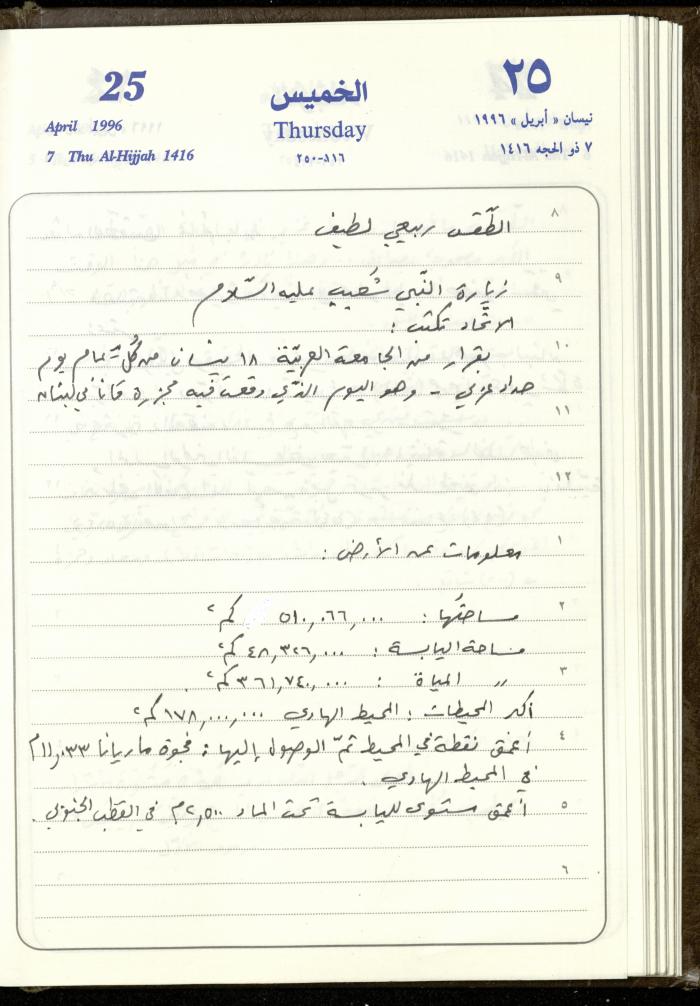 25
April 1996
7 Thu Al-Hijjah 1416
الخميس
Thursday
٨١٦-٢٥٠
٢٥
نيسان « أبريل » ١٩٩٦
٧ ذو الحجه ١٤١٦
٨
الطّقس ربيعي لطيف
٩
زيارة النّبي شعيب عليه السّلام
الاتّحاد تكتب :
١٠
بقرار من الجامعة العربيّة ١٨ نيسان من كُلّ عام يوم
حداد عربي - وهو اليوم الذّي وقعت فيه مجزرة قانا في لبنان
١١
١٢
١
معلومات عن الأرض :
٢
مساحتُها : ٥١٠,٠٦٦,٠٠٠ كم٢
مساحة اليابسة : ٤٨,٣٢٦,٠٠٠ كم٢
٣
〃 المياة : ٣٦١,٧٤٠,٠٠٠ كم٢ .
أكبر المحيطات : المحيط الهادي ١٧٨,٠٠٠,٠٠٠ كم٢
٤
أعمق نقطة في المحيط تمّ الوصول إليها : فجوة ماريانا ١١,٠٣٣م
في المحيط الهادي .
٥
أعمق مستوى لليابسة تحت الماء ٢,٥١٠م في القطب الجنوبي .
٦